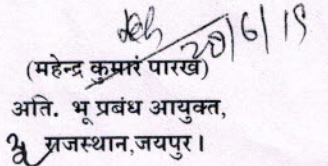 20/6/19
(महेन्द्र कुमार पारख)
अति. भू प्रबंध आयुक्त,
राजस्थान,जयपुर।